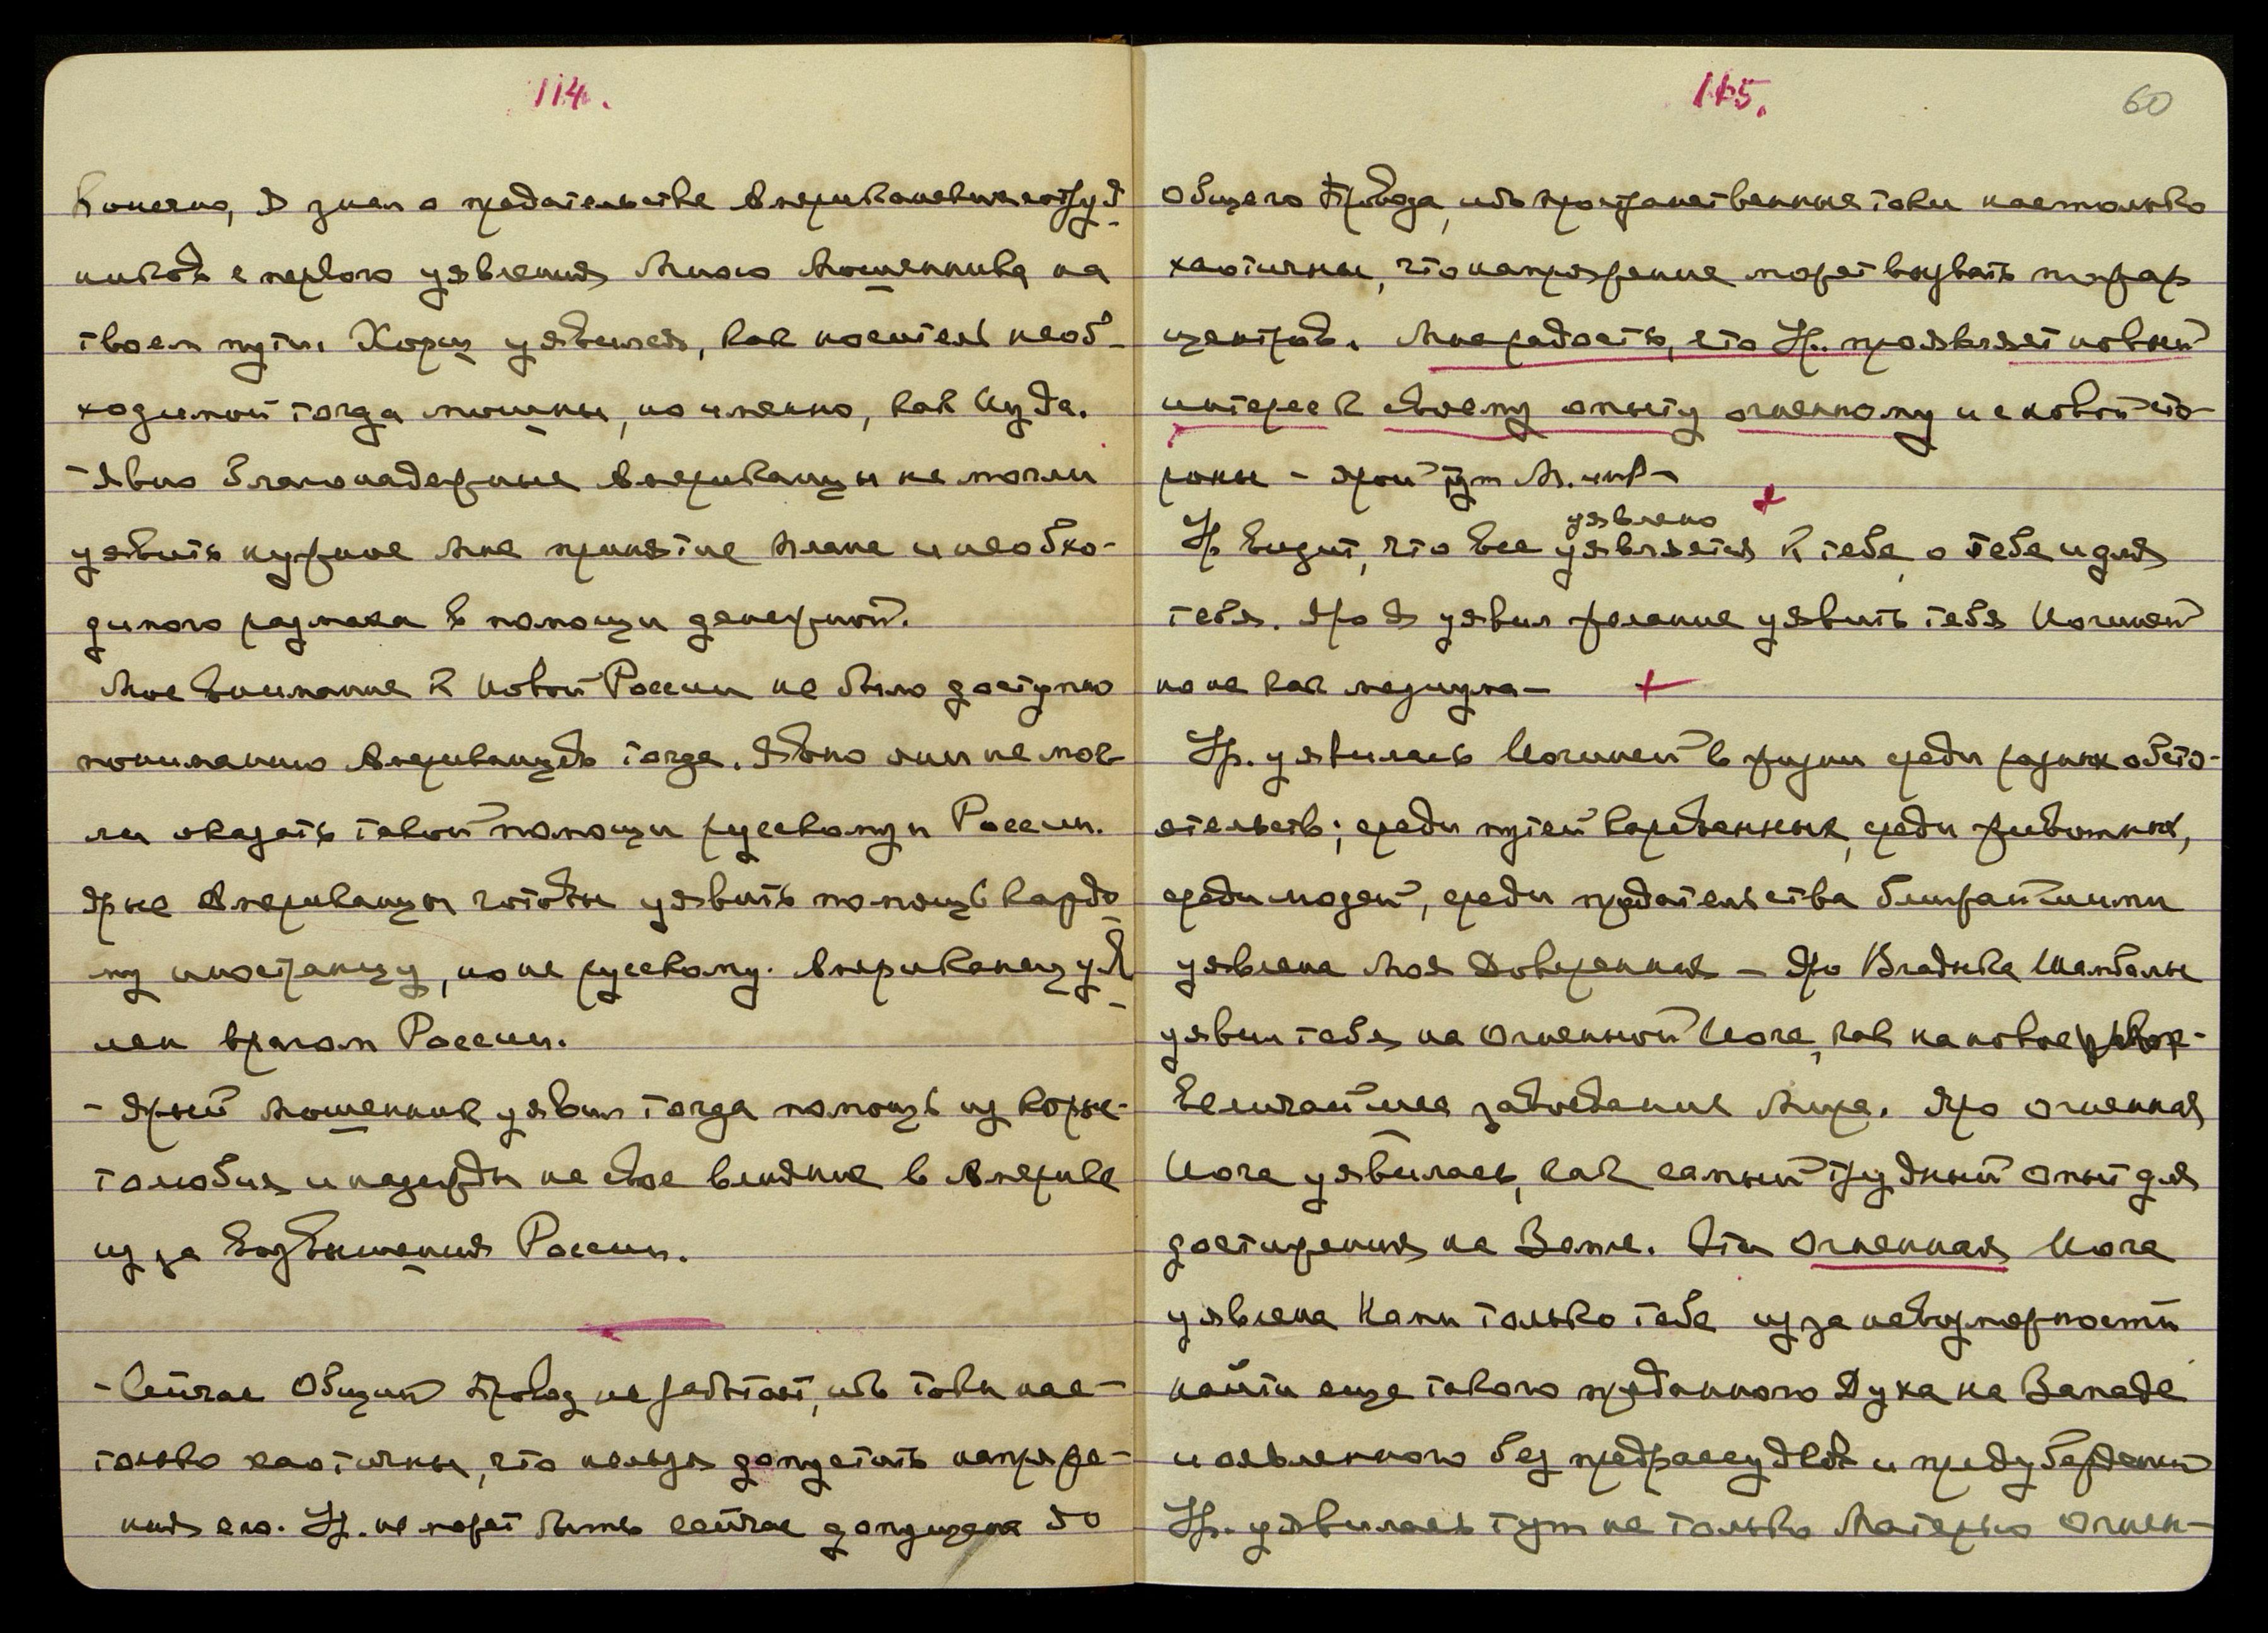 114.
Конечно, Я знал о предательстве Американских сотруд-
ников с первого уявления Мною Мошенника на
твоем пути. Хорш уявился, как носитель необ-
ходимой тогда мошны, но именно, как Иуда.
- Явно благонадежные Американцы не могли
уявить нужное Мне принятие Плана и необхо-
димого размаха в помощи денежной.
Мое внимание к Новой России не было доступно
пониманию Американцев тогда. Явно они не мог-
ли оказать такой помощи русскому и России.
Ярые Американцы готовы уявить помощь каждо-
му иностранцу, но не русскому. Американец уяв-
лен врагом России.
- Ярый Мошенник уявил тогда помощь из корыс-
толюбия и надежды на свое влияние в Америке
из за возвышения России.
- Сейчас Общий Провод не работает, ибо токи нас-
только хаотичны, что нельзя допустить напряже-
ния его. Ур. не может быть сейчас допущена до
115.
60
Общего Провода, ибо пространственные токи настолько
хаотичны, что напряжение может вызвать пожар
центров. Мне радость, что Ур. проявляет новый
интерес к своему опыту огненному и с новой сто-
роны -
уявлено
Ур. видит, что все уявляется к тебе, о тебе и для
тебя. Яро Я уявил желание уявить тебя Йогиней
но не как медиума -
Ур. уявилась Йогиней в жизни среди разных обсто-
ятельств; среди путей караванных, среди животных,
среди людей, среди предательства ближайшими
уявлена Моя Доверенная - Яро Владыка Шамбалы
уявил тебя на Огненной Йоге, как на новое
величайшее завоевание Мира. Яро огненная
Йога уявилась, как самый трудный опыт для
достижения на Земле. Эта Огненная Йога
уявлена Нами только тебе из за невозможности
найти еще такого преданного Духа на Западе
и оявленного без предрассудков и предубеждений
Ур. уявилась тут не только Матерью Огнен-